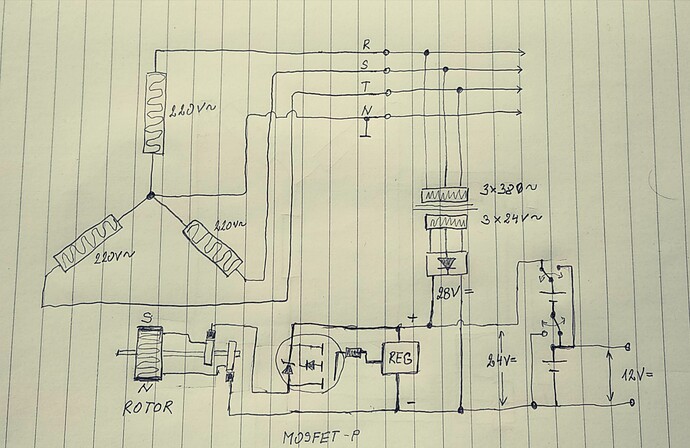 R
S
T
N
220V~
220V~
220V~
3×380~
3×24V~
28V=
S
N
ROTOR
+
REG
-
24V=
12V=
MOSFET-P